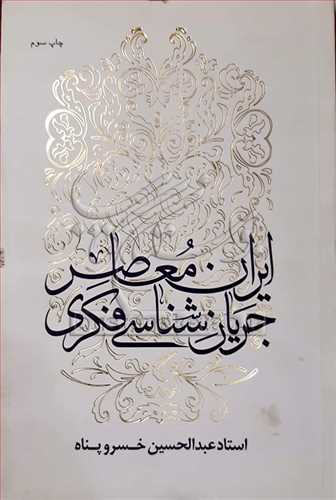 چاپ سوم
ایران معاصر
جریان شناسی فکری
استاد عبدالحسین خسروپناه